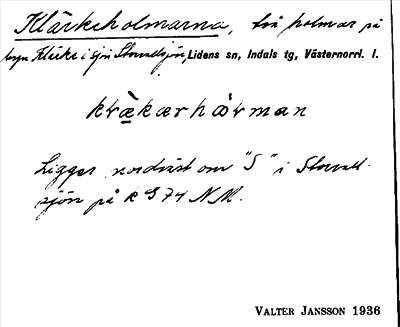 Klärkeholmarna, två holmar på
byn Klärke i sjön Stavattsjön, Lidens sn, Indals tg, Västernorrl. l.
kræ̀kærhòrman
Ligger nordväst om "S" i Stavatt-
sjön på R 974 NM.
VALTER JANSSON 1936